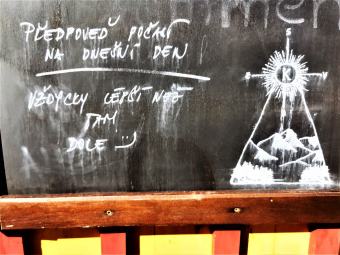 PŘEDPOVEĎ POČASÍ
NA DNEŠNÍ DEN
VŽDYCKY LEPŠÍ NEŽ
TAM
DOLE :)
S
V
K